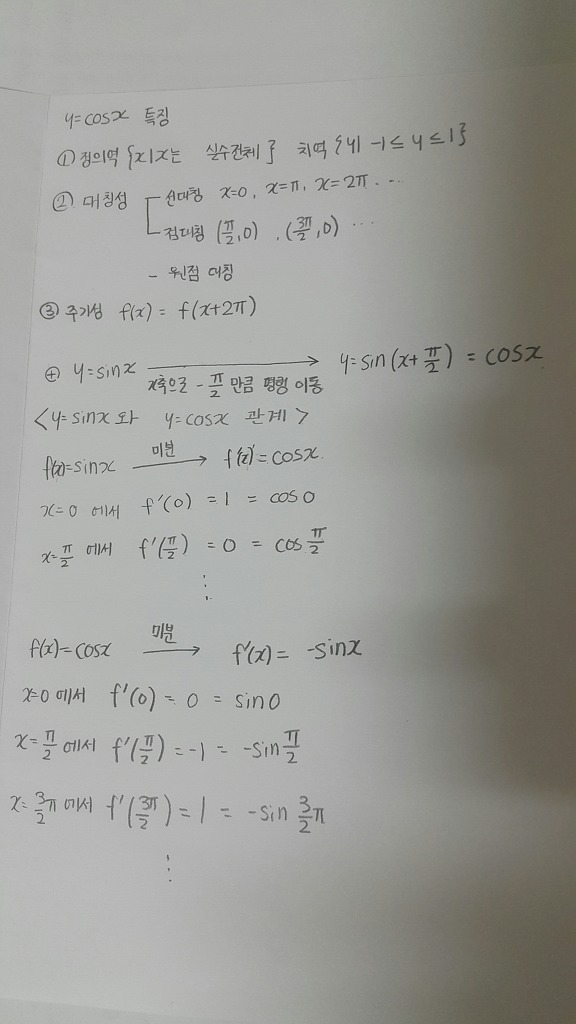 y=cosx 특징
① 정의역 {x|x는 실수전체} 치역 {y| -1≤y≤1}
② 대칭성 선대칭 x=0, x=π, x=2π. ...
점대칭 (π/2,0) , (3π/2,0) ...
- 원점 대칭
③ 주기성 f(x) = f(x+2π)
⊕ y=sinx → y=sin(x+π/2) = cosx
x축으로 -π/2 만큼 평행 이동
<y=sinx와 y=cosx 관계>
f(x)=sinx 미분→ f'(x)=cosx.
x=0 에서 f'(0) = 1 = cos0
x=π/2 에서 f'(π/2) = 0 = cos π/2
⋮
f(x)=cosx 미분→ f'(x)= -sinx
x=0 에서 f'(0) = 0 = sin0
x=π/2 에서 f'(π/2) = -1 = -sin π/2
x=3/2π 에서 f'(3π/2) = 1 = -sin 3/2π
⋮